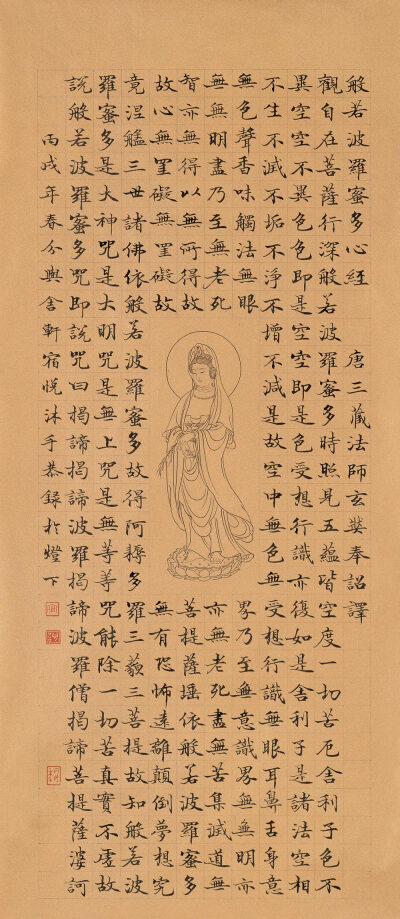 般若波羅蜜多心經 唐三藏法師玄奘奉詔譯
觀自在菩薩行深般若波羅蜜多時照見五蘊皆空度一切苦厄舍利子色不
異空空不異色色即是空空即是色受想行識亦復如是舍利子是諸法空相
不生不滅不垢不淨不增不減是故空中無色無受想行識無眼耳鼻舌身意
無色聲香味觸法無眼界乃至無意識界無無明亦
無無明盡乃至無老死亦無老死盡無苦集滅道無
智亦無得以無所得故菩提薩埵依般若波羅蜜多
故心無罣礙無罣礙故無有恐怖遠離顛倒夢想究
竟涅槃三世諸佛依般若波羅蜜多故得阿耨多羅三藐三菩提故知般若波
羅蜜多是大神咒是大明咒是無上咒是無等等咒能除一切苦真實不虛故
說般若波羅蜜多咒即說咒曰揭諦揭諦波羅揭諦波羅僧揭諦菩提薩婆訶
丙戌年春分與舍軒宿悅沐手恭錄於燈下